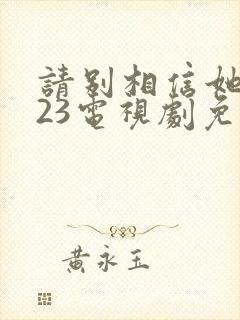 請別相信她
23電視劇免
黃永玉